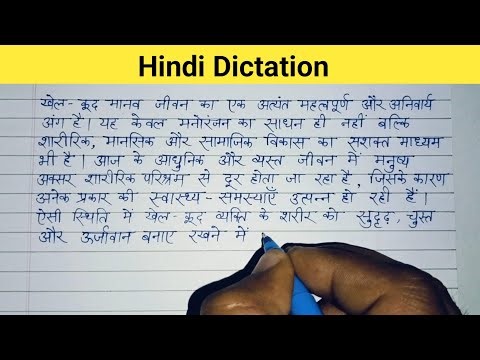 Hindi Dictation
खेल-कूद मानव जीवन का एक अत्यंत महत्वपूर्ण और अनिवार्य
अंग है। यह केवल मनोरंजन का साधन ही नहीं बल्कि
शारीरिक, मानसिक और सामाजिक विकास का सशक्त माध्यम
भी है। आज के आधुनिक और व्यस्त जीवन में मनुष्य
अक्सर शारीरिक परिश्रम से दूर होता जा रहा है, जिसके कारण
अनेक प्रकार की स्वास्थ्य-समस्याएँ उत्पन्न हो रही हैं।
ऐसी स्थिति में खेल-कूद व्यक्ति के शरीर को सुदृढ़, चुस्त
और ऊर्जावान बनाए रखने में